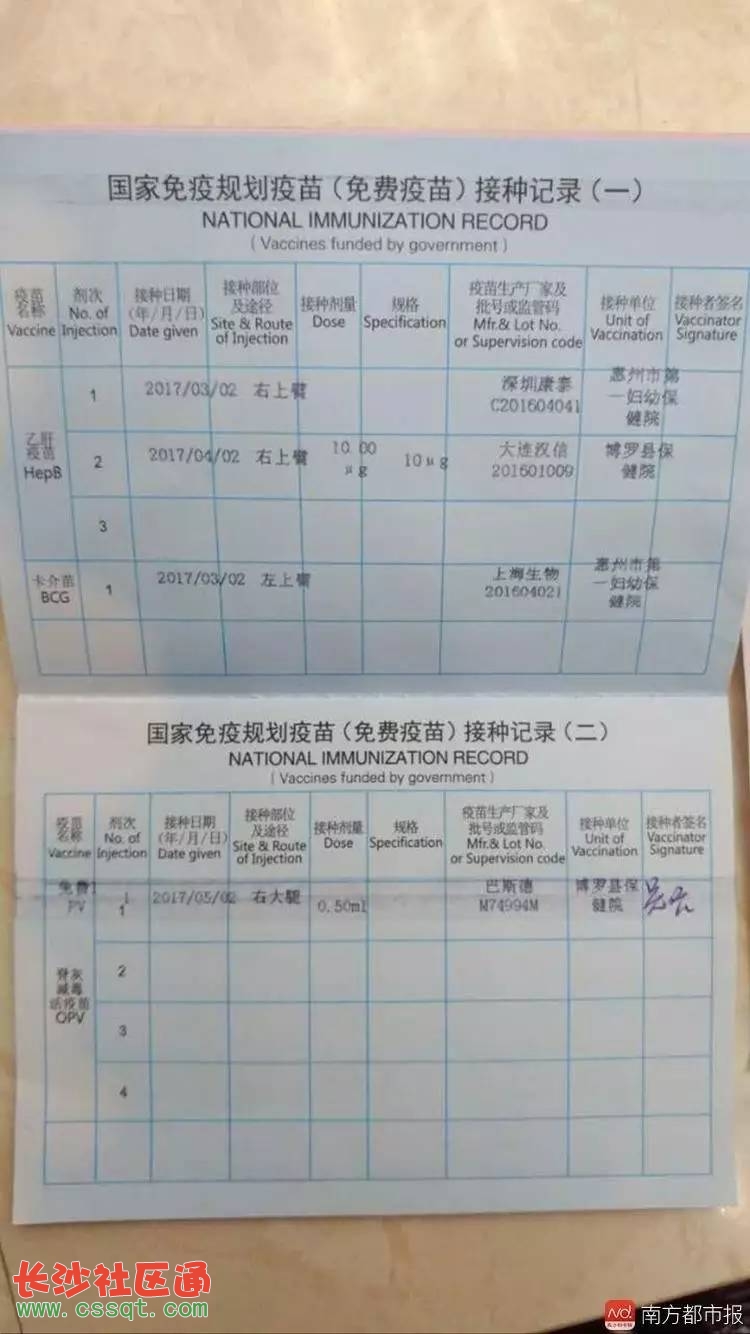 国家免疫规划疫苗（免费疫苗）接种记录（一）
NATIONAL IMMUNIZATION RECORD
( Vaccines funded by government )
疫苗
名称
Vaccine
剂次
No. of
Injection
接种日期
(年/月/日)
Date given
接种部位
及途径
Site & Route
of Injection
接种剂量
Dose
规格
Specification
疫苗生产厂家及
批号或监管码
Mfr.& Lot No.
or Supervision code
接种单位
Unit of
Vaccination
接种者签名
Vaccinator
Signature
乙肝
疫苗
HepB
1
2017/03/02
右上臂
深圳康泰
C201604041
惠州市第
一妇幼保
健院
2
2017/04/02
右上臂
10.00
μg
10μg
大连汉信
201601009
博罗县保
健院
3
卡介苗
BCG
1
2017/03/02
左上臂
上海生物
201604021
惠州市第
一妇幼保
健院
国家免疫规划疫苗（免费疫苗）接种记录（二）
NATIONAL IMMUNIZATION RECORD
( Vaccines funded by government )
疫苗
名称
Vaccine
剂次
No. of
Injection
接种日期
(年/月/日)
Date given
接种部位
及途径
Site & Route
of Injection
接种剂量
Dose
规格
Specification
疫苗生产厂家及
批号或监管码
Mfr.& Lot No.
or Supervision code
接种单位
Unit of
Vaccination
接种者签名
Vaccinator
Signature
免费I
PV
1
1
2017/05/02
右大腿
0.50ml
巴斯德
M74994M
博罗县保
健院
脊灰
减毒
活疫苗
OPV
2
3
4
长沙社区通
www.cssqt.com
南方都市报